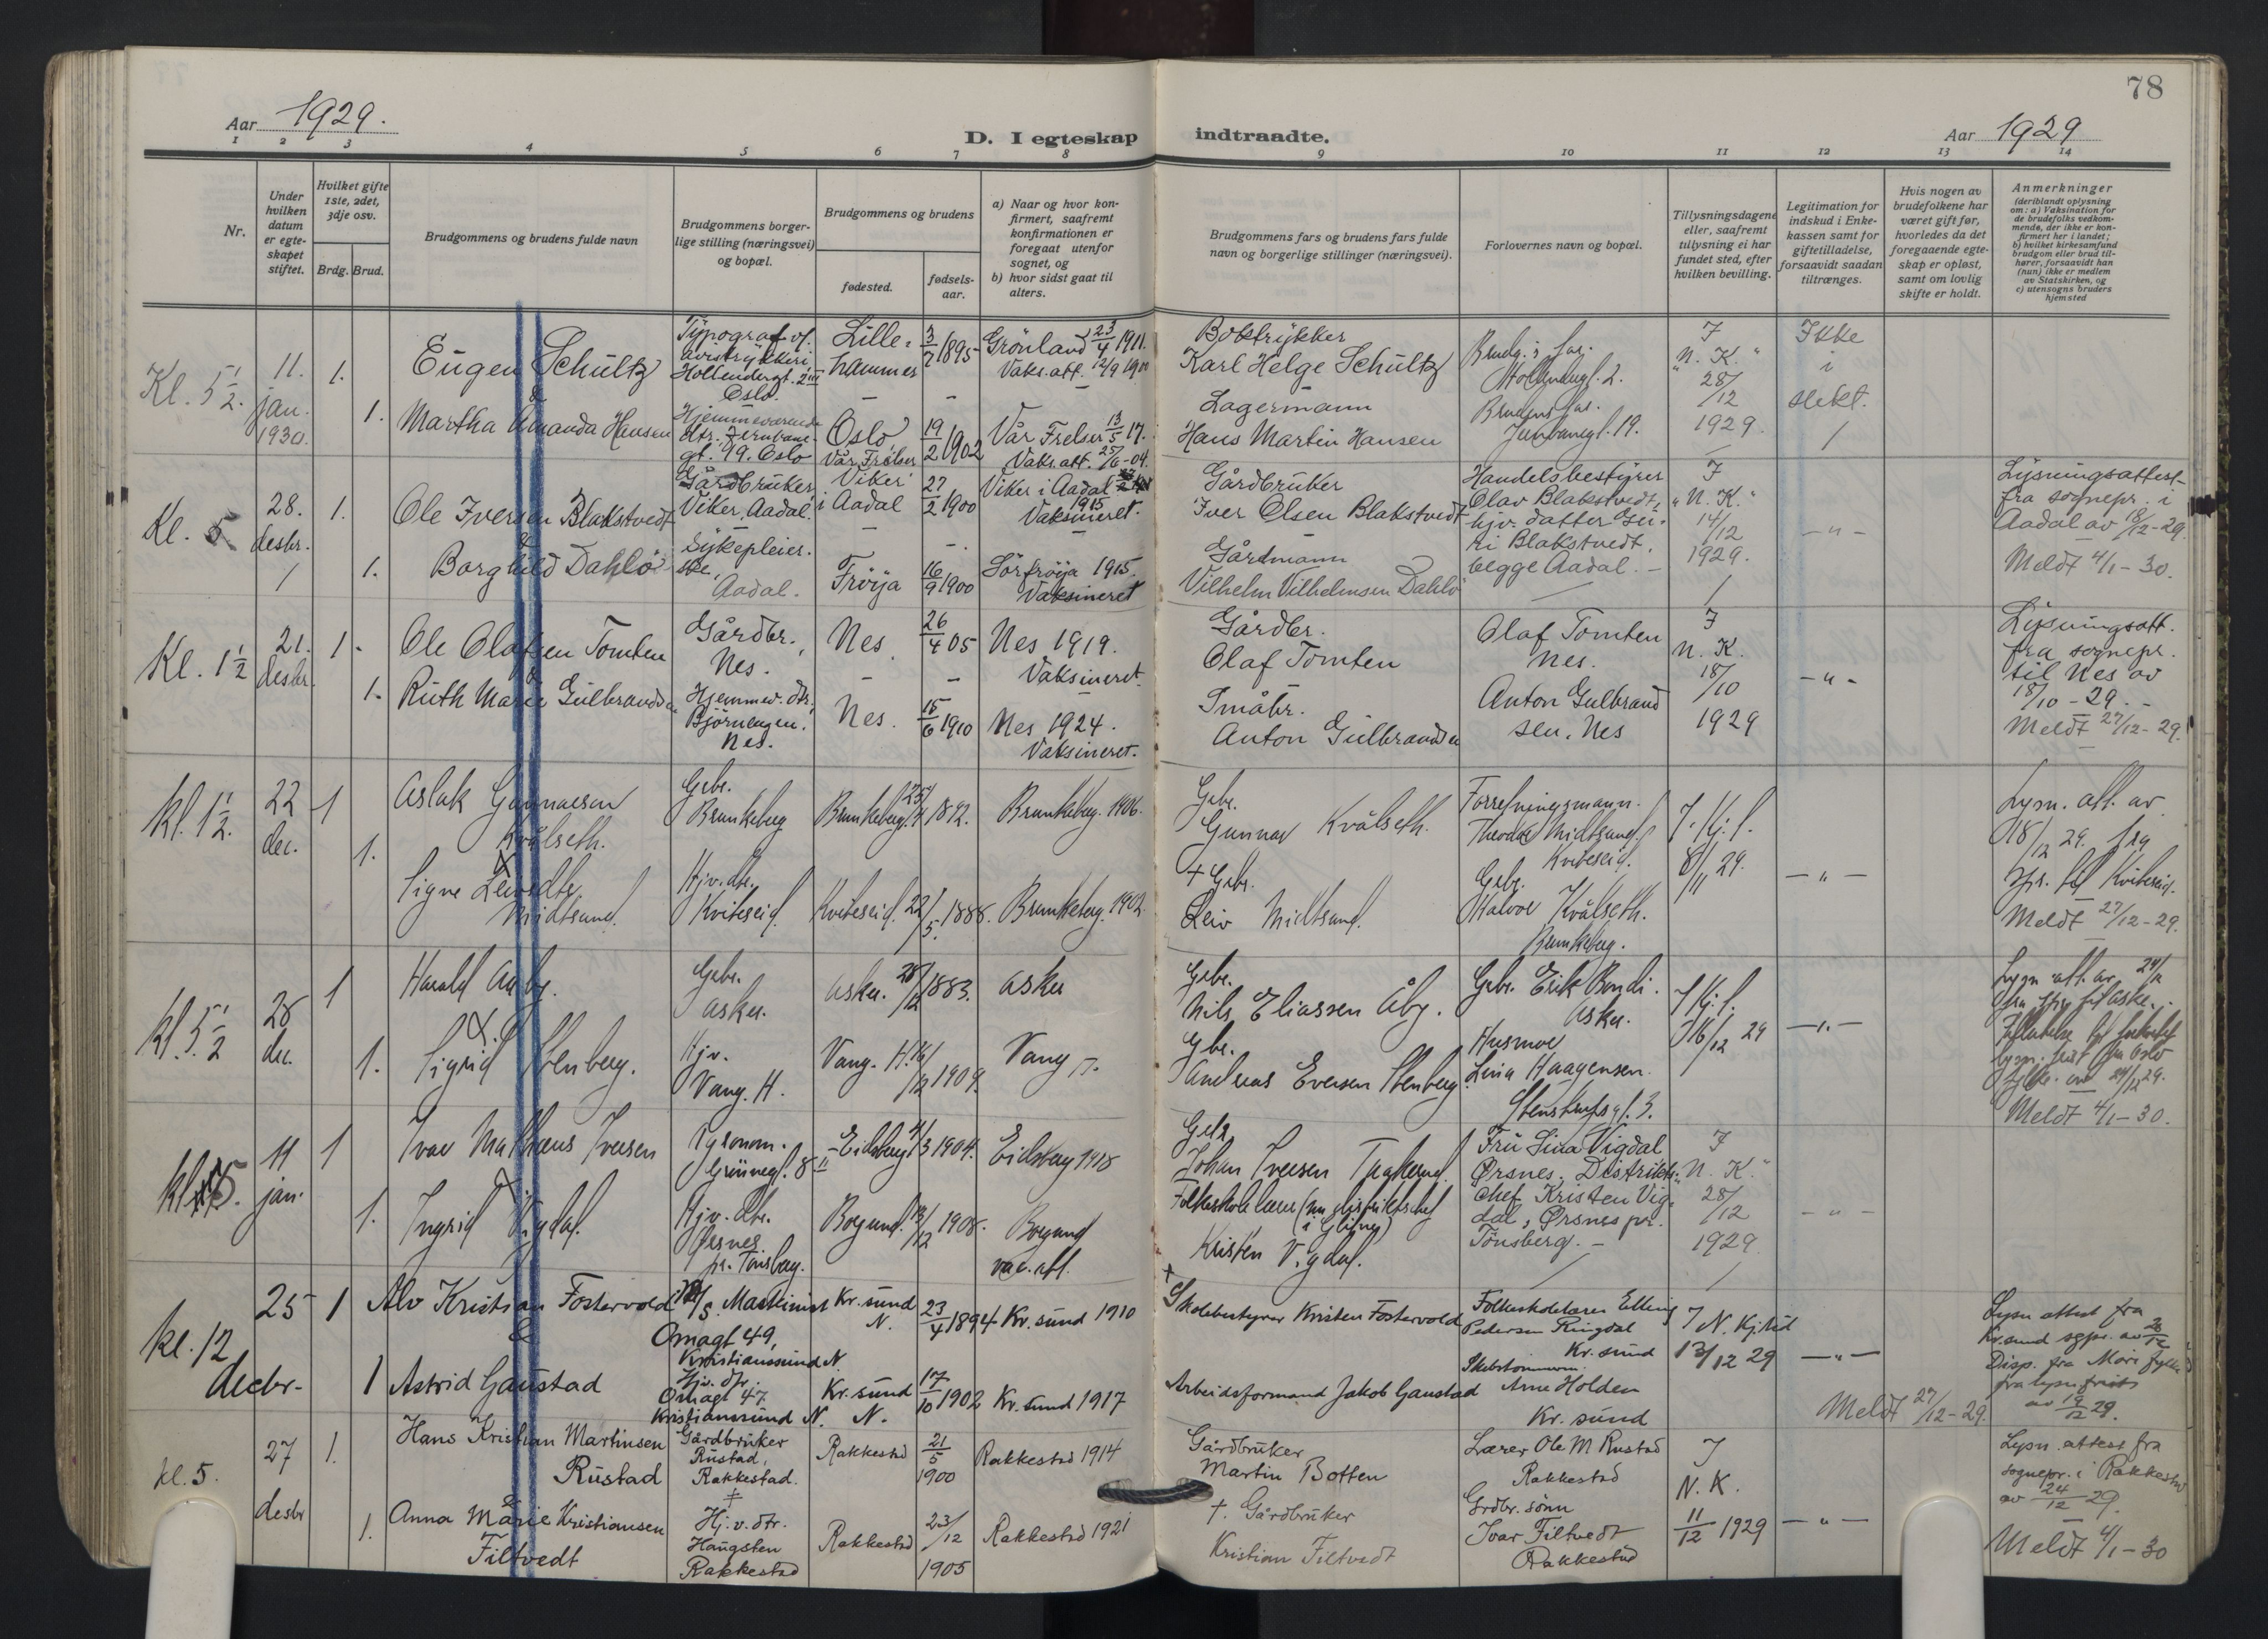 78
Aar 1929.
D. I egteskap indtraadte.
Aar 1929
1 2 3 4 5 6 7 8 9 10 11 12 13 14
Nr.
Under hvilken datum er egteskapet stiftet.
Hvilket gifte 1ste, 2det, 3dje osv.
Brdg. Brud.
Brudgommens og brudens fulde navn
Brudgommens borgerlige stilling (næringsvei) og bopæl.
Brudgommens og brudens
fødested.
fødselsaar.
a) Naar og hvor konfirmert, saafremt konfirmationen er foregaat utenfor sognet, og
b) hvor sidst gaat til alters.
Brudgommens fars og brudens fars fulde navn og borgerlige stillinger (næringsvei).
Forlovernes navn og bopæl.
Tillysningsdagene eller, saafremt tillysning ei har fundet sted, efter hvilken bevilling.
Legitimation for indskud i Enkekassen samt for giftetilladelse, forsaavidt saadan tiltrænges.
Hvis nogen av brudefolkene har været gift før, hvorledes da det foregaaende egteskap er opløst, samt om lovlig skifte er holdt.
Anmerkninger
(deriblandt oplysning om: a) Vaksination for de brudefolks vedkommende, der ikke er konfirmert her i landet; b) hvilket kirkesamfund brudgom eller brud tilhører, forsaavidt han (hun) ikke er medlem av Statskirken, og c) utensogns bruders hjemsted
Kl. 5 1/2. 11. jan. 1930. 1. 1.
Eugen Schultz
&
Martha Amanda Hansen
Typograf v/ avistrykkeri Hollendergt. 2 III Oslo.
Hjemmeværende dtr. Jernbanegt. 19. Oslo
Lillehammer 3/7 1895
Oslo Vår Frelser 19/2 1902
Grönland 23/4 1911. Vaks.att.
Vår Frelser 13/5 17. Vaks.att. 25/6-04.
Boktrykker
Karl Helge Schultz
Lagermann
Hans Martin Hansen
Brudg.s far. Hollendergt. 2.
Brudens far. Jernbanegt. 19.
I "N. K." 28/12 1929
Ikke i slekt.
Kl. 5 28. desbr. 1. 1.
Ole Iversen Blakstvedt
&
Borghild Dahlö
Gårdbruker Viker, Aadal.
Sykepleierske, Aadal.
Viker i Aadal 27/2 1900
Fröya 16/9 1900
Viker i Aadal 1915 Vaksineret.
Sörfröya 1915. Vaksineret
Gårdbruker
Iver Olsen Blakstvedt
Gårdmann
Vilhelm Vilhelmsen Dahlö
Handelsbestyrer Olav Blakstvedt, hjv. datter Guri Blakstvedt, begge Aadal.
I "N. K." 14/12 1929.
- " -
Lysningsattest fra sognepr. i Aadal av 18/12-29.
Meldt 4/1-30.
Kl. 1 1/2 21. desbr. 1. 1.
Ole Olafsen Tomten
&
Ruth Marie Gulbrandsen
Gårdbr., Nes.
Hjemmev. dtr. Björnengen, Nes.
Nes 26/4 05
Nes. 15/6 1910
Nes 1919. Vaksineret.
Nes 1924. Vaksineret.
Gårdbr.
Olaf Tomten
Småbr.
Anton Gulbrandsen
Olaf Tomten Nes.
Anton Gulbrandsen, Nes
I N. K. 18/10 1929
- " -
Lysningsatt. fra sognepr. til Nes av 18/10-29.
Meldt 27/12-29.
Kl. 1 1/2. 22 dec. 1 1.
Aslak Gunnarson Kvålseth.
&
Signe Leivsdtr. Midtsund.
Gbr. Brunkeberg
Hjv. dtr. Kviteseid.
Brunkeberg. 1892.
Kviteseid. 22/5. 1888.
Brunkeberg. 1906.
Brunkeberg. 1902.
Gbr.
Gunnar Kvålseth.
+ Gbr.
Leiv Midtsund.
Forretningsmann. Theodor Midtsund Kviteseid.
Gbr. Halvor Kvålseth. Brunkeberg.
8/11 29.
- " -
Lysn. att. av 18/12 29. fra spr. til Kviteseid.
Meldt 27/12-29.
Kl. 5 1/2 28 dec. 1 1.
Harald Aaby.
&
Sigrid Stenberg.
Gbr. Asker.
Hjv. Vang. H.
Asker. 1883.
Vang. H. 16/12 1909.
Asker
Vang
Gbr.
Nils Eliassen Åby.
Gbr.
Andreas Eversen Stenberg.
Gbr. Erik Bondi. Asker.
Husmor Lina Haagensen. Stenstrupsgt. 3.
16/12 29
- " -
Meldt 4/1-30.
kl. 5. 11 jan. 1 1.
Ivar Mathæus Iversen
&
Ingrid Vigdal.
Agronom. Grünergt. 8 II
Hjv. dtr. Ørsnes pr. Tönsberg.
Eidsberg 1904.
Borgund. 1908.
Eidsberg 1918
Borgund vac. att.
Johan Iversen
Kristen Vigdal.
Fru Lina Vigdal Ørsnes, Distriktschef Kristen Vigdal, Ørsnes pr. Tönsberg.
I "N. K." 28/12 1929
- " -
kl. 12 25 decbr. 1 1
Alv Kristian Fostervold
&
Astrid Gaustad
Maskinist Omagt 49, Kristianssund N.
Hjv. dtr. Omagt 47. Kristianssund N.
Kr.sund N. 23/4 1894
Kr.sund N. 17/10 1902
Kr.sund 1910
Kr.sund 1917
+ Skolebestyrer Kristen Fostervold
Arbeidsformand Jakob Gaustad
Folkeskolelærer Elling Pedersen Ringdal Kr.sund
Arne Holden Kr. sund
I N. Kj.tid 13/12 29
- " -
Meldt 27/12-29.
Lysn attest fra Kr.sund sgpr. av
Disp. fra Möre fylke fra lysn.frist av 19/12 29.
kl. 5. 27 desbr 1. 1.
Hans Kristian Martinsen Rustad
&
Anna Marie Kristiansen Filtvedt
Gårdbruker Rustad, Rakkestad.
Hj.v. dtr. Haugsten Rakkestad
Rakkestad 21/5 1900
Rakkestad 23/12 1905
Rakkestad 1914
Rakkestad 1921
Gårdbruker
Martin Botten
+. Gårdbruker
Kristian Filtvedt
Lærer Ole M Rustad Rakkestad
Grdbr. sönn Ivar Filtvedt Rakkestad
I N. K. 11/12 1929
- " -
Lysn. attest fra sognepr. i Rakkestad av 24/12 29.
Meldt 4/1-30